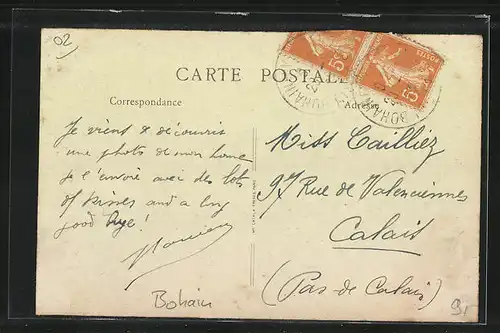 02
CARTE POSTALE
Correspondance
Adresse
Je viens de découvrir
une photo de mon home
je l'envoie avec des lots
of kisses and a big
good bye!
Miss Cailliez
97 Rue de Valenciennes
Calais
(Pas de Calais)
Bohain
BOHAIN
5c
5c
POSTES